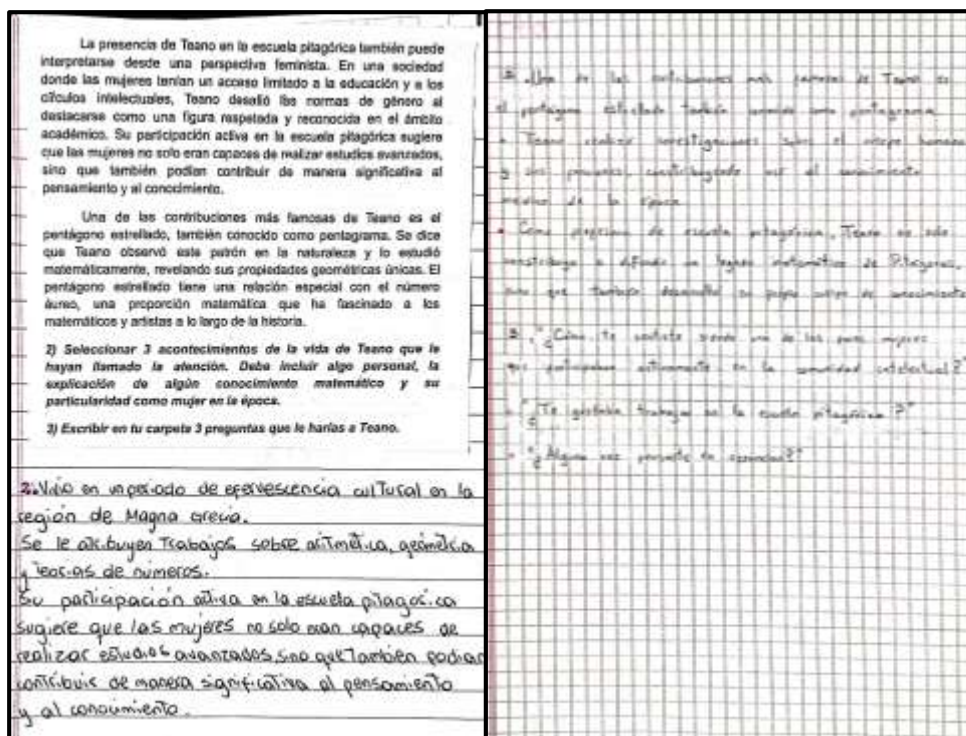 La presencia de Teano en la escuela pitagórica también puede
interpretarse desde una perspectiva feminista. En una sociedad
donde las mujeres tenían un acceso limitado a la educación y a los
círculos intelectuales, Teano desafió las normas de género al
destacarse como una figura respetada y reconocida en el ámbito
académico. Su participación activa en la escuela pitagórica sugiere
que las mujeres no solo eran capaces de realizar estudios avanzados,
sino que también podían contribuir de manera significativa al
pensamiento y al conocimiento.
Una de las contribuciones más famosas de Teano es el
pentágono estrellado, también conocido como pentagrama. Se dice
que Teano observó este patrón en la naturaleza y lo estudió
matemáticamente, revelando sus propiedades geométricas únicas. El
pentágono estrellado tiene una relación especial con el número
áureo, una proporción matemática que ha fascinado a los
matemáticos y artistas a lo largo de la historia.
2) Seleccionar 3 acontecimientos de la vida de Teano que le
hayan llamado la atención. Debe incluir algo personal, la
explicación de algún conocimiento matemático y su
particularidad como mujer en la época.
3) Escribir en tu carpeta 3 preguntas que le harías a Teano.
2. Vivió en un periodo de efervescencia cultural en la
región de Magna Grecia.
Se le atribuyen Trabajos sobre aritmética, geometría
y teorías de números.
Su participación activa en la escuela pitagórica
sugiere que las mujeres no solo eran capaces de
realizar estudios avanzados, sino que También podían
contribuir de manera significativa al pensamiento
y al conocimiento.
Una de las contribuciones más famosas de Teano es
el pentágono estrellado también conocido como pentagrama
Teano realizó investigaciones sobre el cuerpo humano
y sus funciones, así al conocimiento
médico de la época
Como de escuela pitagórica, Teano no solo
a difundir matemático de Pitágoras,
sino que también desarrolló su propio de conocimiento
"¿Cómo te sentiste siendo una de las pocas mujeres
que participaban activamente en la comunidad intelectual?"
"¿Te gustaba trabajar en la escuela pitagórica?"
"¿Alguna vez pensaste en renunciar?"